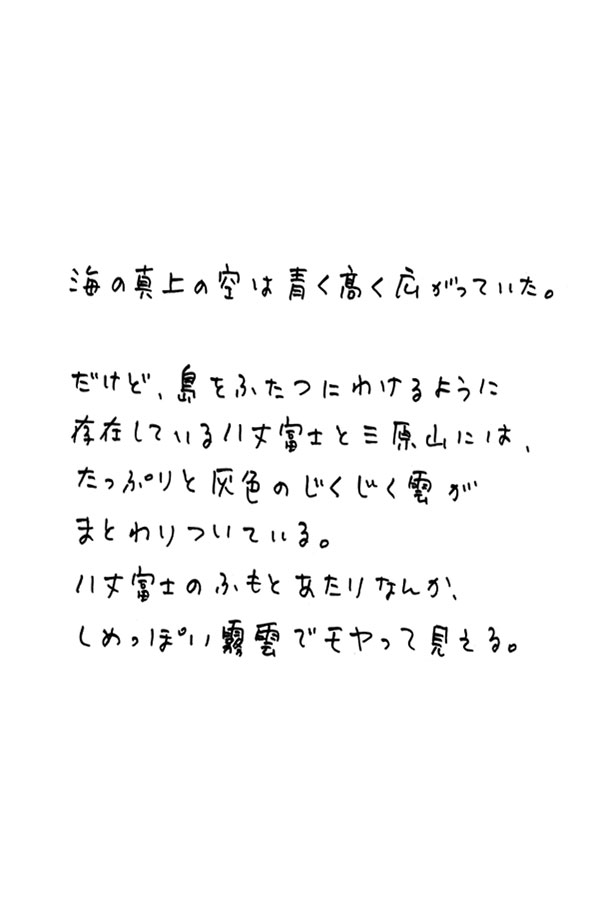 海の真上の空は青く高く広がっていた。
だけど、島をふたつにわけるように
存在している八丈富士と三原山には、
たっぷりと灰色のじくじく雲が
まとわりついている。
八丈富士のふもとあたりなんか、
しめっぽい霧雲でモヤって見える。